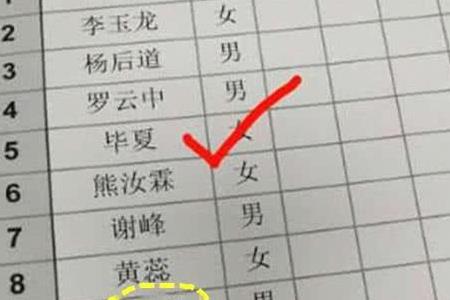 2 李玉龙 女
3 杨后道 男
4 罗云中 男
5 毕夏 女
6 熊汝霖 女
7 谢峰 男
8 黄蕊 女